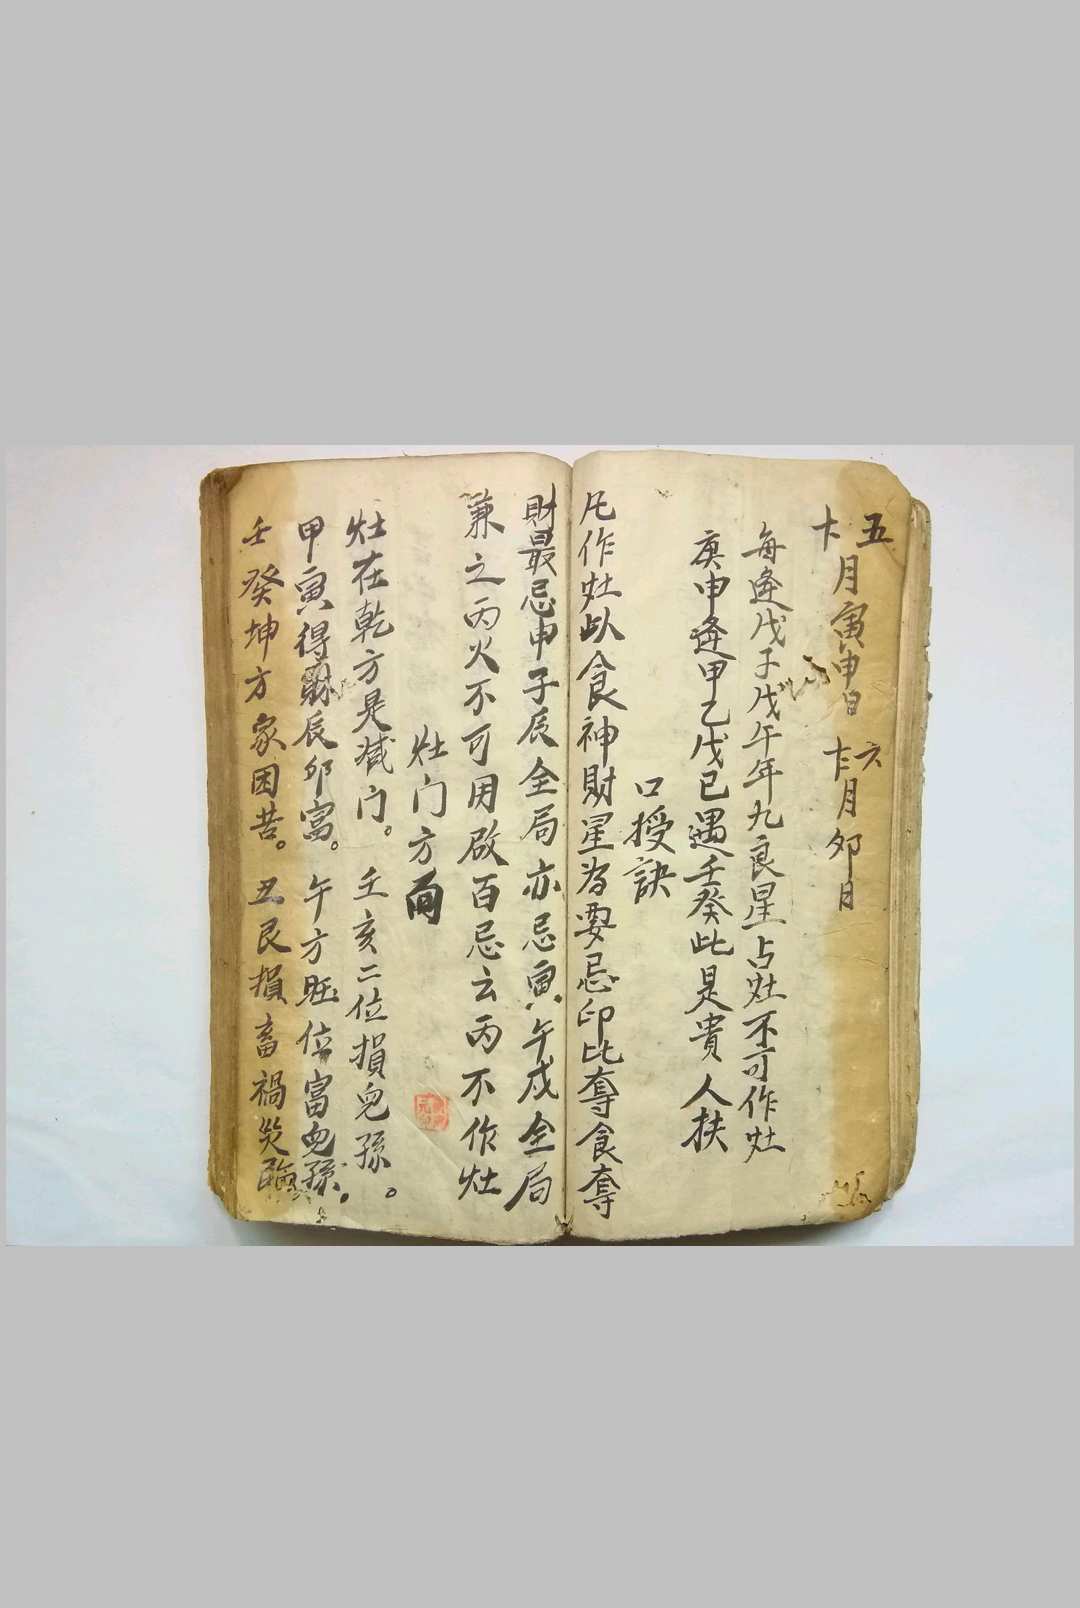 五十月寅申日 六十月卯日
每逢戊子戊午年九良星占灶不可作灶
庚申逢甲乙戊已遇壬癸此是貴人扶
口授訣
凡作灶以食神財星为要忌印比奪食奪
財最忌申子辰全局亦忌寅午戌全局
兼之丙火不可用啟百忌云丙不作灶
灶门方向
灶在乾方是滅门。壬亥二位損兒孫。
甲寅得財辰卯富。午方旺位富兒孫。
壬癸坤方家困苦。丑艮損畜禍災臨